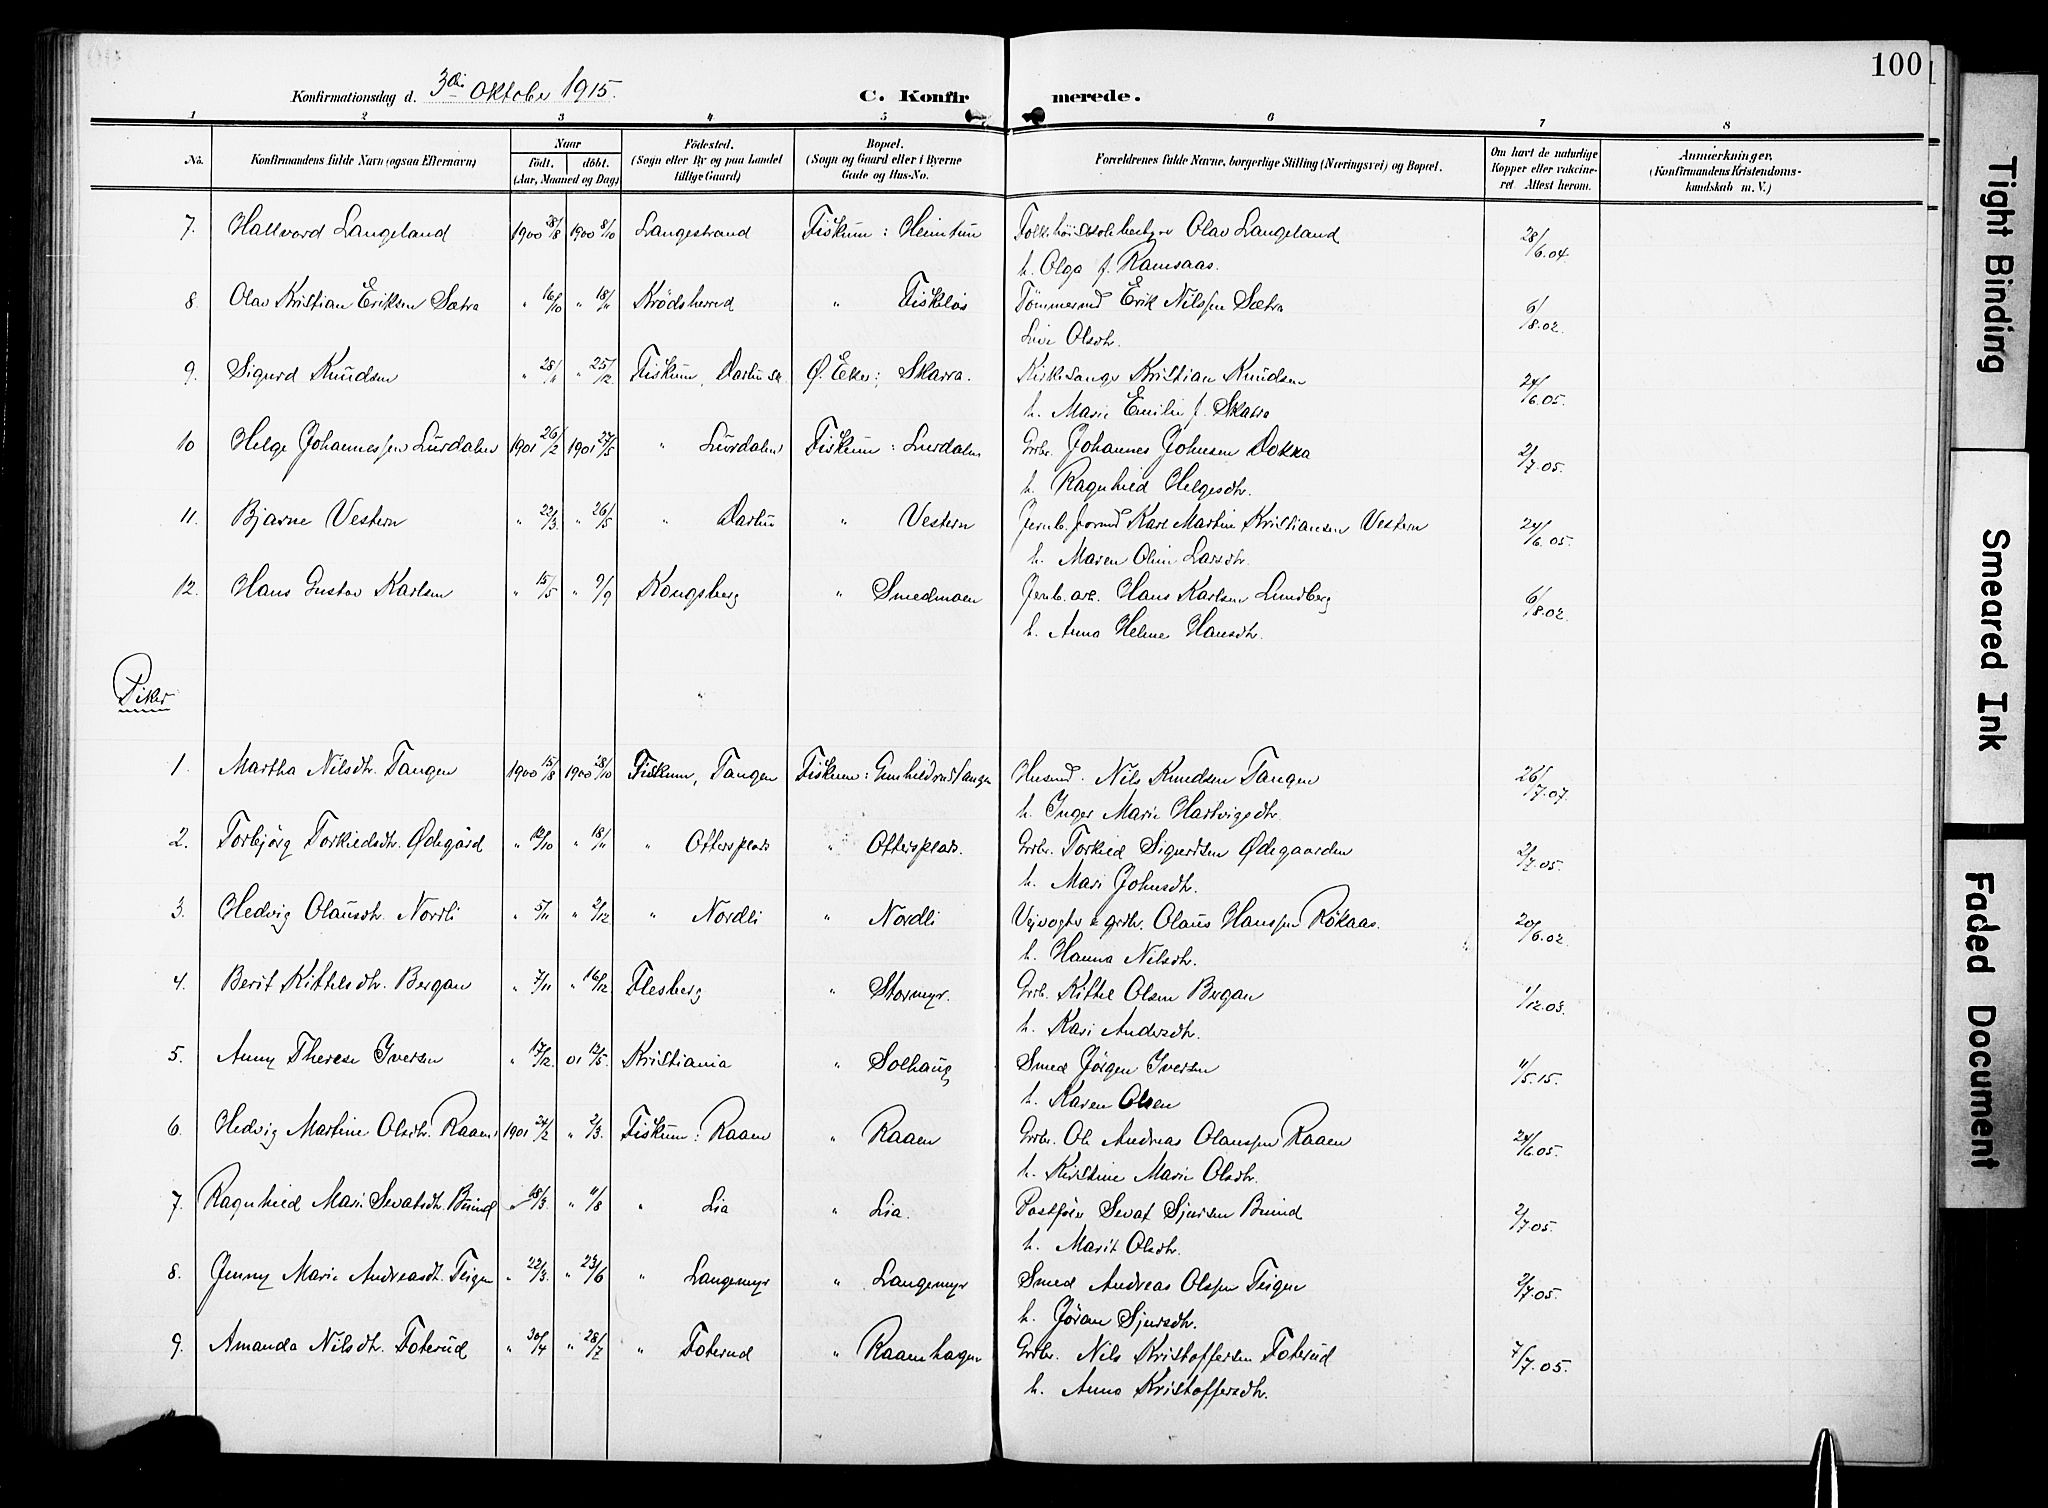 100
Konfirmationsdag d. 3die Oktober 1915.
C. Konfir merede.
1 2 3 4 5 6 7 8
No. Konfirmandens fulde Navn (ogsaa Efternavn) Naar født. døbt. (Aar, Maaned og Dag) Fødested. (Sogn eller By og paa Landet tillige Gaard) Bopæl. (Sogn og Gaard eller i Byerne Gade og Hus-No. Forældrenes fulde Navne, borgerlige Stilling (Næringsvei) og Bopæl. Om havt de naturlige Kopper eller vakcineret Attest herom. Anmærkninger. (Konfirmandens Kristendomskundskab m. V.)
7. Hallvard Langeland 1900 28/8 1900 8/10 Langestrand Fiskum : Heimtun Olav Langeland 28/6.04.
h. Olga f. Ramsaas.
8. Olav Kristian Eriksen Sætra " 16/10 " 18/11 Krødsherred " Fiskløs Tømmermd Erik Nilssen Sætra 6/8.02.
Live Olsdtr.
9. Sigurd Knudsen " 28/11 " 25/12 Fiskum, Ø. Eker : Skarra. Kirkesanger Kristian Knudsen 24/6.05.
h. Marie Emilie f. Skarra
10 Helge Johannessen Lurdalen 1901 26/2 1901 27/5 " Lurdalen Fiskum : Lurdalen Grdbr. Johannes Johnsen Dokka 2/7.05.
h. Ragnhild Helgesdtr.
11. Bjarne Vestern " 22/3 " 26/5 " Darbu " Vestern Jernb.formd Karl Martin Kristiansen Vestern 24/6.05.
h. Maren Olin Larsdtr.
12. Hans Gustav Karlsen " 15/5 " 9/9 Kongsberg " Smedmoen Jernb. arb. Hans Karlsen Lundberg 6/8.02.
h. Anna Helene Hansdtr.
Piker "
1. Martha Nilsdtr. Tangen 1900 15/8 1900 28/10 Fiskum, Tangen Fiskum : Gunhildrudtangen Husmd. Nils Knudsen Tangen 26/7.07.
h. Inger Marie Hartvigsdtr.
2. Torbjørg Torkildsdtr. Ødegård " 12/10 " 18/11 " Ottersplads " Ottersplads. Grdbr. Torkild Sigurdsen Ødegaarden 2/7.05.
h. Mari Johnsdtr.
3. Hedvig Olausdtr. Nordli " 5/11 " 2/12 " Nordli " Nordli Veivogter & grdbr. Olaus Hanssen Røkaas. 20/6.02.
h. Hanna Nilsdtr.
4. Berit Kittelsdtr. Bergan " 7/11 " 16/12 Flesberg " Stormyr. Grdb. Kittel Olsen Bergan 1/12.03.
h. Kari Andersdtr.
5. Anny Therese Iversen " 17/12. 01 12/5. Kristiania " Solhaug Smed Jørgen Iversen 11/5.15.
h. Karen Olsen
6. Hedvig Martine Olsdtr. Raaen 1901 24/2 " 2/3. Fiskum : Raaen " Raaen Grdbr. Ole Andreas Olaussen Raaen 24/6.05.
h. Kirstine Marie Olsdtr.
7. Ragnhild Mari Sevatsdtr. Buind " 18/3. " 11/8 " Lia " Lia. Sevat Sjursen Buind 2/7.05.
h. Marit Olsdtr.
8. Jenny Marie Andreasdt. Teigen " 22/3. " 23/6 " Langemyr " Langemyr Smed Andreas Olssen Teigen 2/7.05.
h. Jøran Sjursdtr.
9. Amanda Nilsdtr. Foterud " 30/4 " 28/7 " Foterud " Raaenhagen Grdbr. Nils Kristoffersen Foterud 7/7.05.
h. Anna Kristoffersdtr.
Tight Binding
Smeared Ink
Faded Document